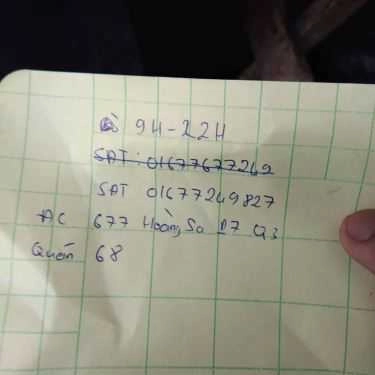 9H-22H
SĐT: 01677677249
SĐT 01677249827
ĐC 677 Hoàng Sa P7 Q3
Quán 68